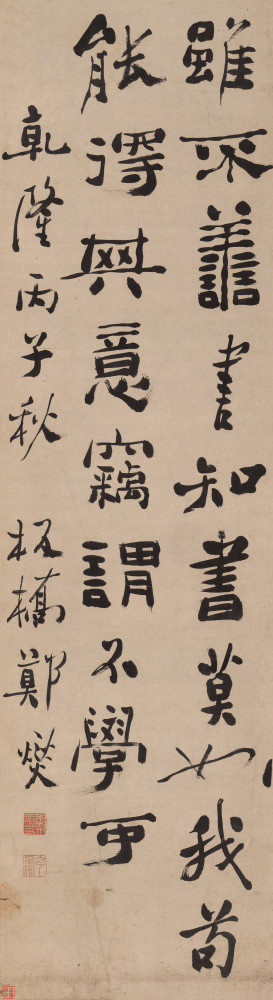 雖不譱書知書莫如我苟
能得其意竊謂不學可
乾隆丙子秋 板橋鄭燮